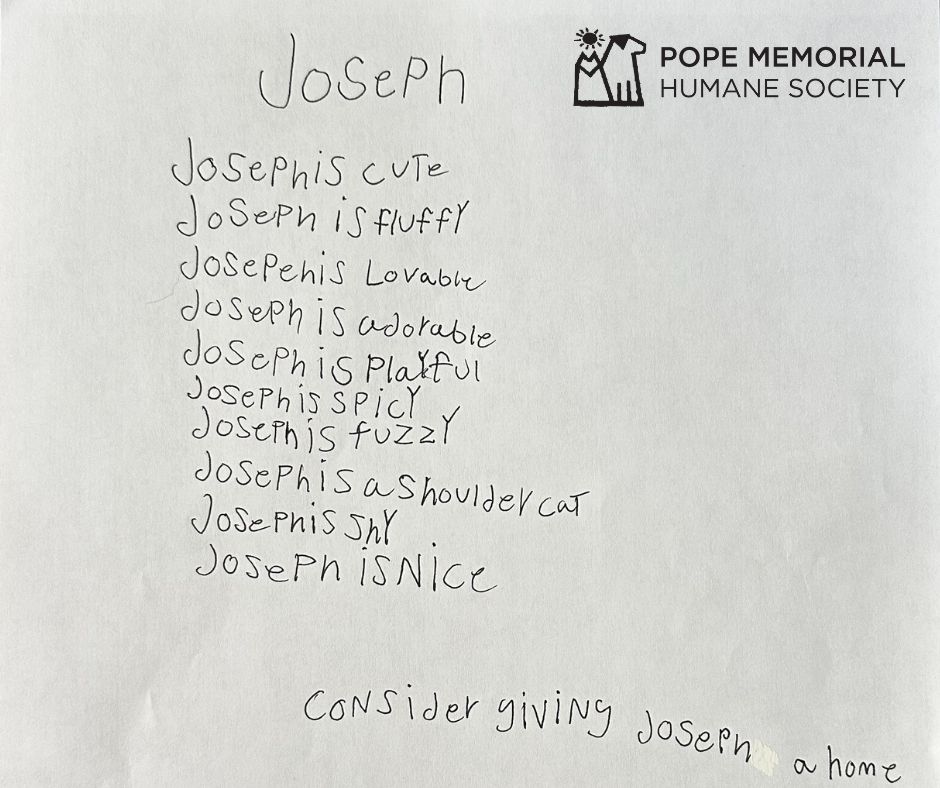 Joseph
POPE MEMORIAL
HUMANE SOCIETY
Joseph is cute
Joseph is fluffy
Josepehis Lovable
Joseph is adorable
Joseph is Playful
Joseph is spicy
Joseph is fuzzy
Joseph is a shoulder cat
Joseph is shy
Joseph is Nice
consider giving Joseph a home